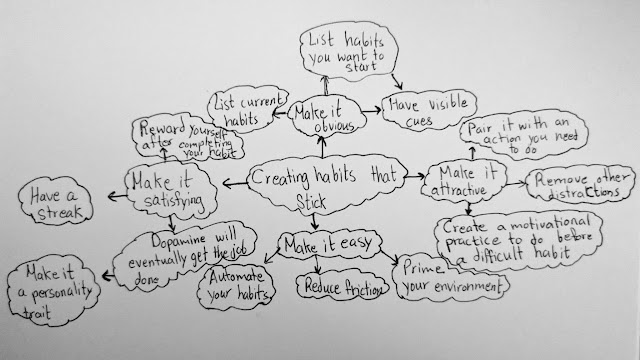 List habits
you want to
start
List current
habits
Make it
obvious
Have visible
cues
Reward yourself
after completing
your habit
Pair it with an
action you need
to do
Have a
streak
Make it
satisfying
Creating habits that
Stick
Make it
attractive
Remove other
distractions
Dopamine will
eventually get the job
done
Make it easy
Create a motivational
practice to do before
a difficult habit
Make it
a personality
trait
Automate
your habits
Reduce friction
Prime
your environment